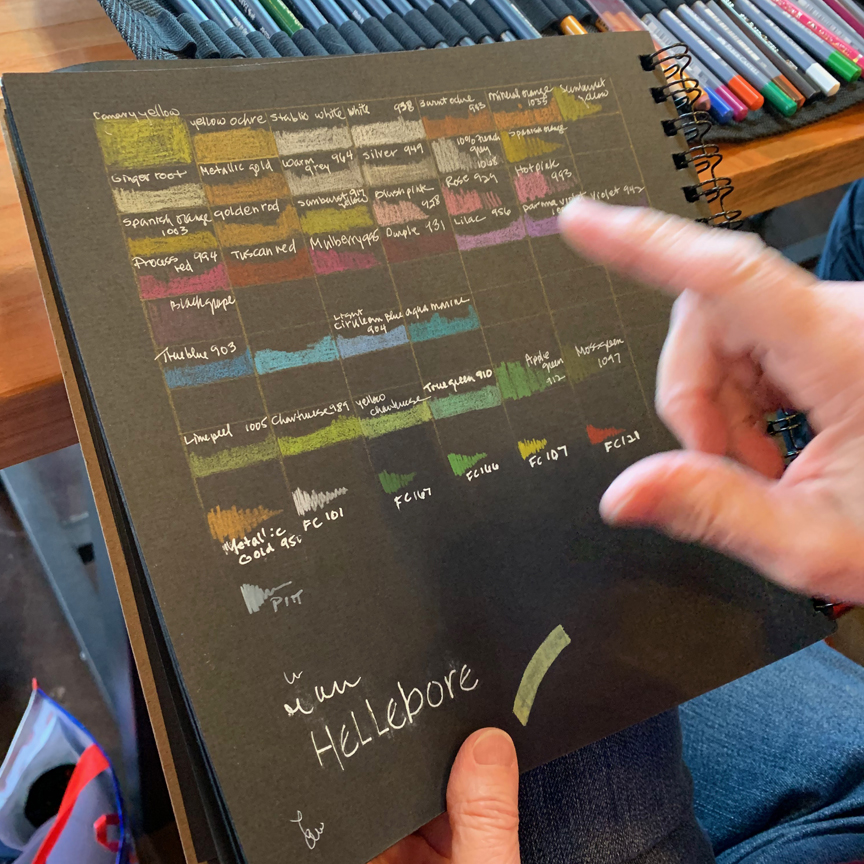 Canary yellow
yellow ochre
Stabilo white
White 938
Burnt ochre 943
Mineral orange
1033
Sunburst
Yellow
Ginger root
Metallic gold
Warm
grey 964
Silver 949
10% French
grey
1068
Spanish orange
Spanish orange
1003
goldenrod
Sunburst 917
yellow
Blush pink
928
Rose 929
Hot pink
993
Process
red 994
Tuscan red
Mulberry 995
Purple 931
Lilac 956
parma violet
Violet 942
Black grape
True blue 903
Light
Cirulean Blue
904
aqua marine
Limepeel 1005
Chartreuse 989
yellow
chartreuse
True green 910
Apple
green
912
Moss green
1097
Metallic
Gold 950
FC 101
FC 167
FC 166
FC 107
FC 121
PITT
Hellebore